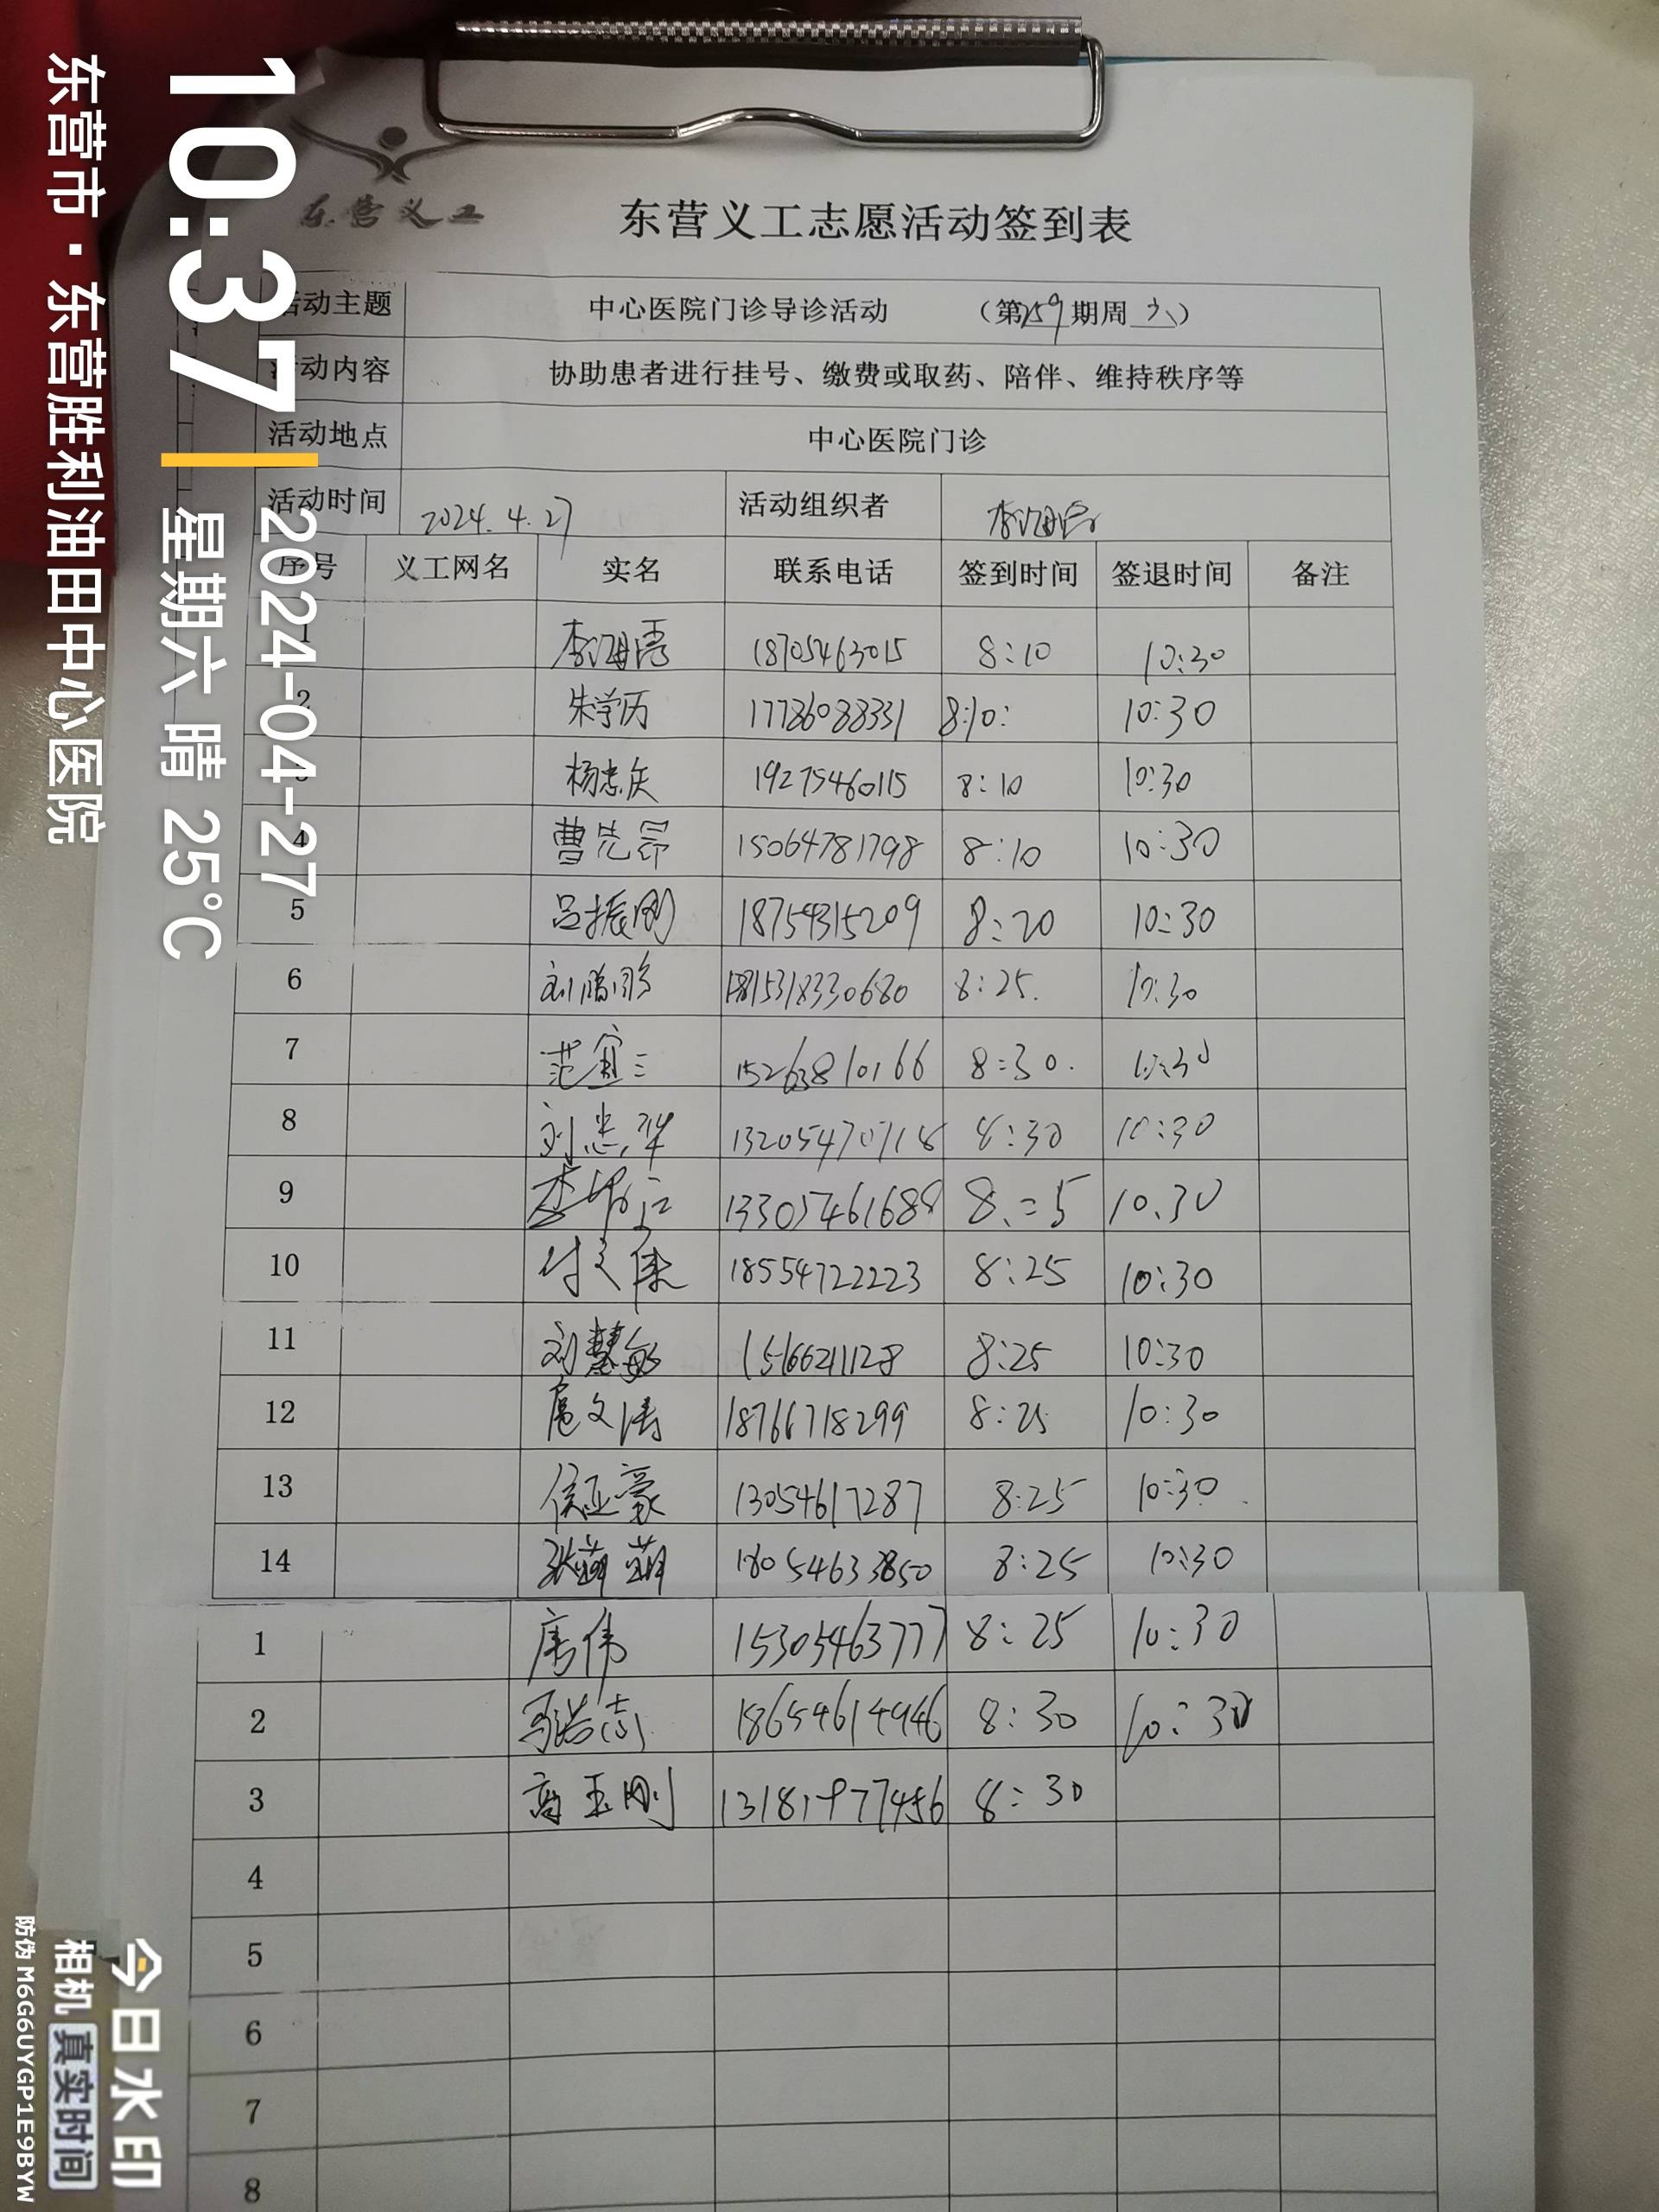 东营义工
东营义工志愿活动签到表
活动主题 中心医院门诊导诊活动 (第159期周六)
活动内容 协助患者进行挂号、缴费或取药、陪伴、维持秩序等
活动地点 中心医院门诊
活动时间 2024.4.27 活动组织者
序号 义工网名 实名 联系电话 签到时间 签退时间 备注
1 18705463015 8:10 10:30
2 17786088331 8:10: 10:30
3 杨忠庆 19275460115 8:10 10:30
4 曹先昂 15064781798 8:10 10:30
5 吕振刚 18754315209 8:20 10:30
6 8:25. 10:30
7 范宜三 15263810166 8:30. 10:30
8 刘忠华 13205470718 8:30 10:30
9 13305461688 10.30
10 付文康 18554722223 8:25 10:30
11 刘慧敏 15166211128 8:25 10:30
12 扈文涛 18766718299 8:25 10:30
13 侯亚豪 13054617287 8:25 10:30
14 张萌萌 18054633850 8:25 10:30
1 唐伟 15305463777 8:25 10:30
2 马浩志 18654614946 8:30 10:30
3 高玉刚 13181977456 8:30
4
5
6
7
8
10:37
2024-04-27
星期六 晴 25℃
东营市·东营胜利油田中心医院
今日水印
相机 真实时间
防伪 M6G6UYGP1E9BYW